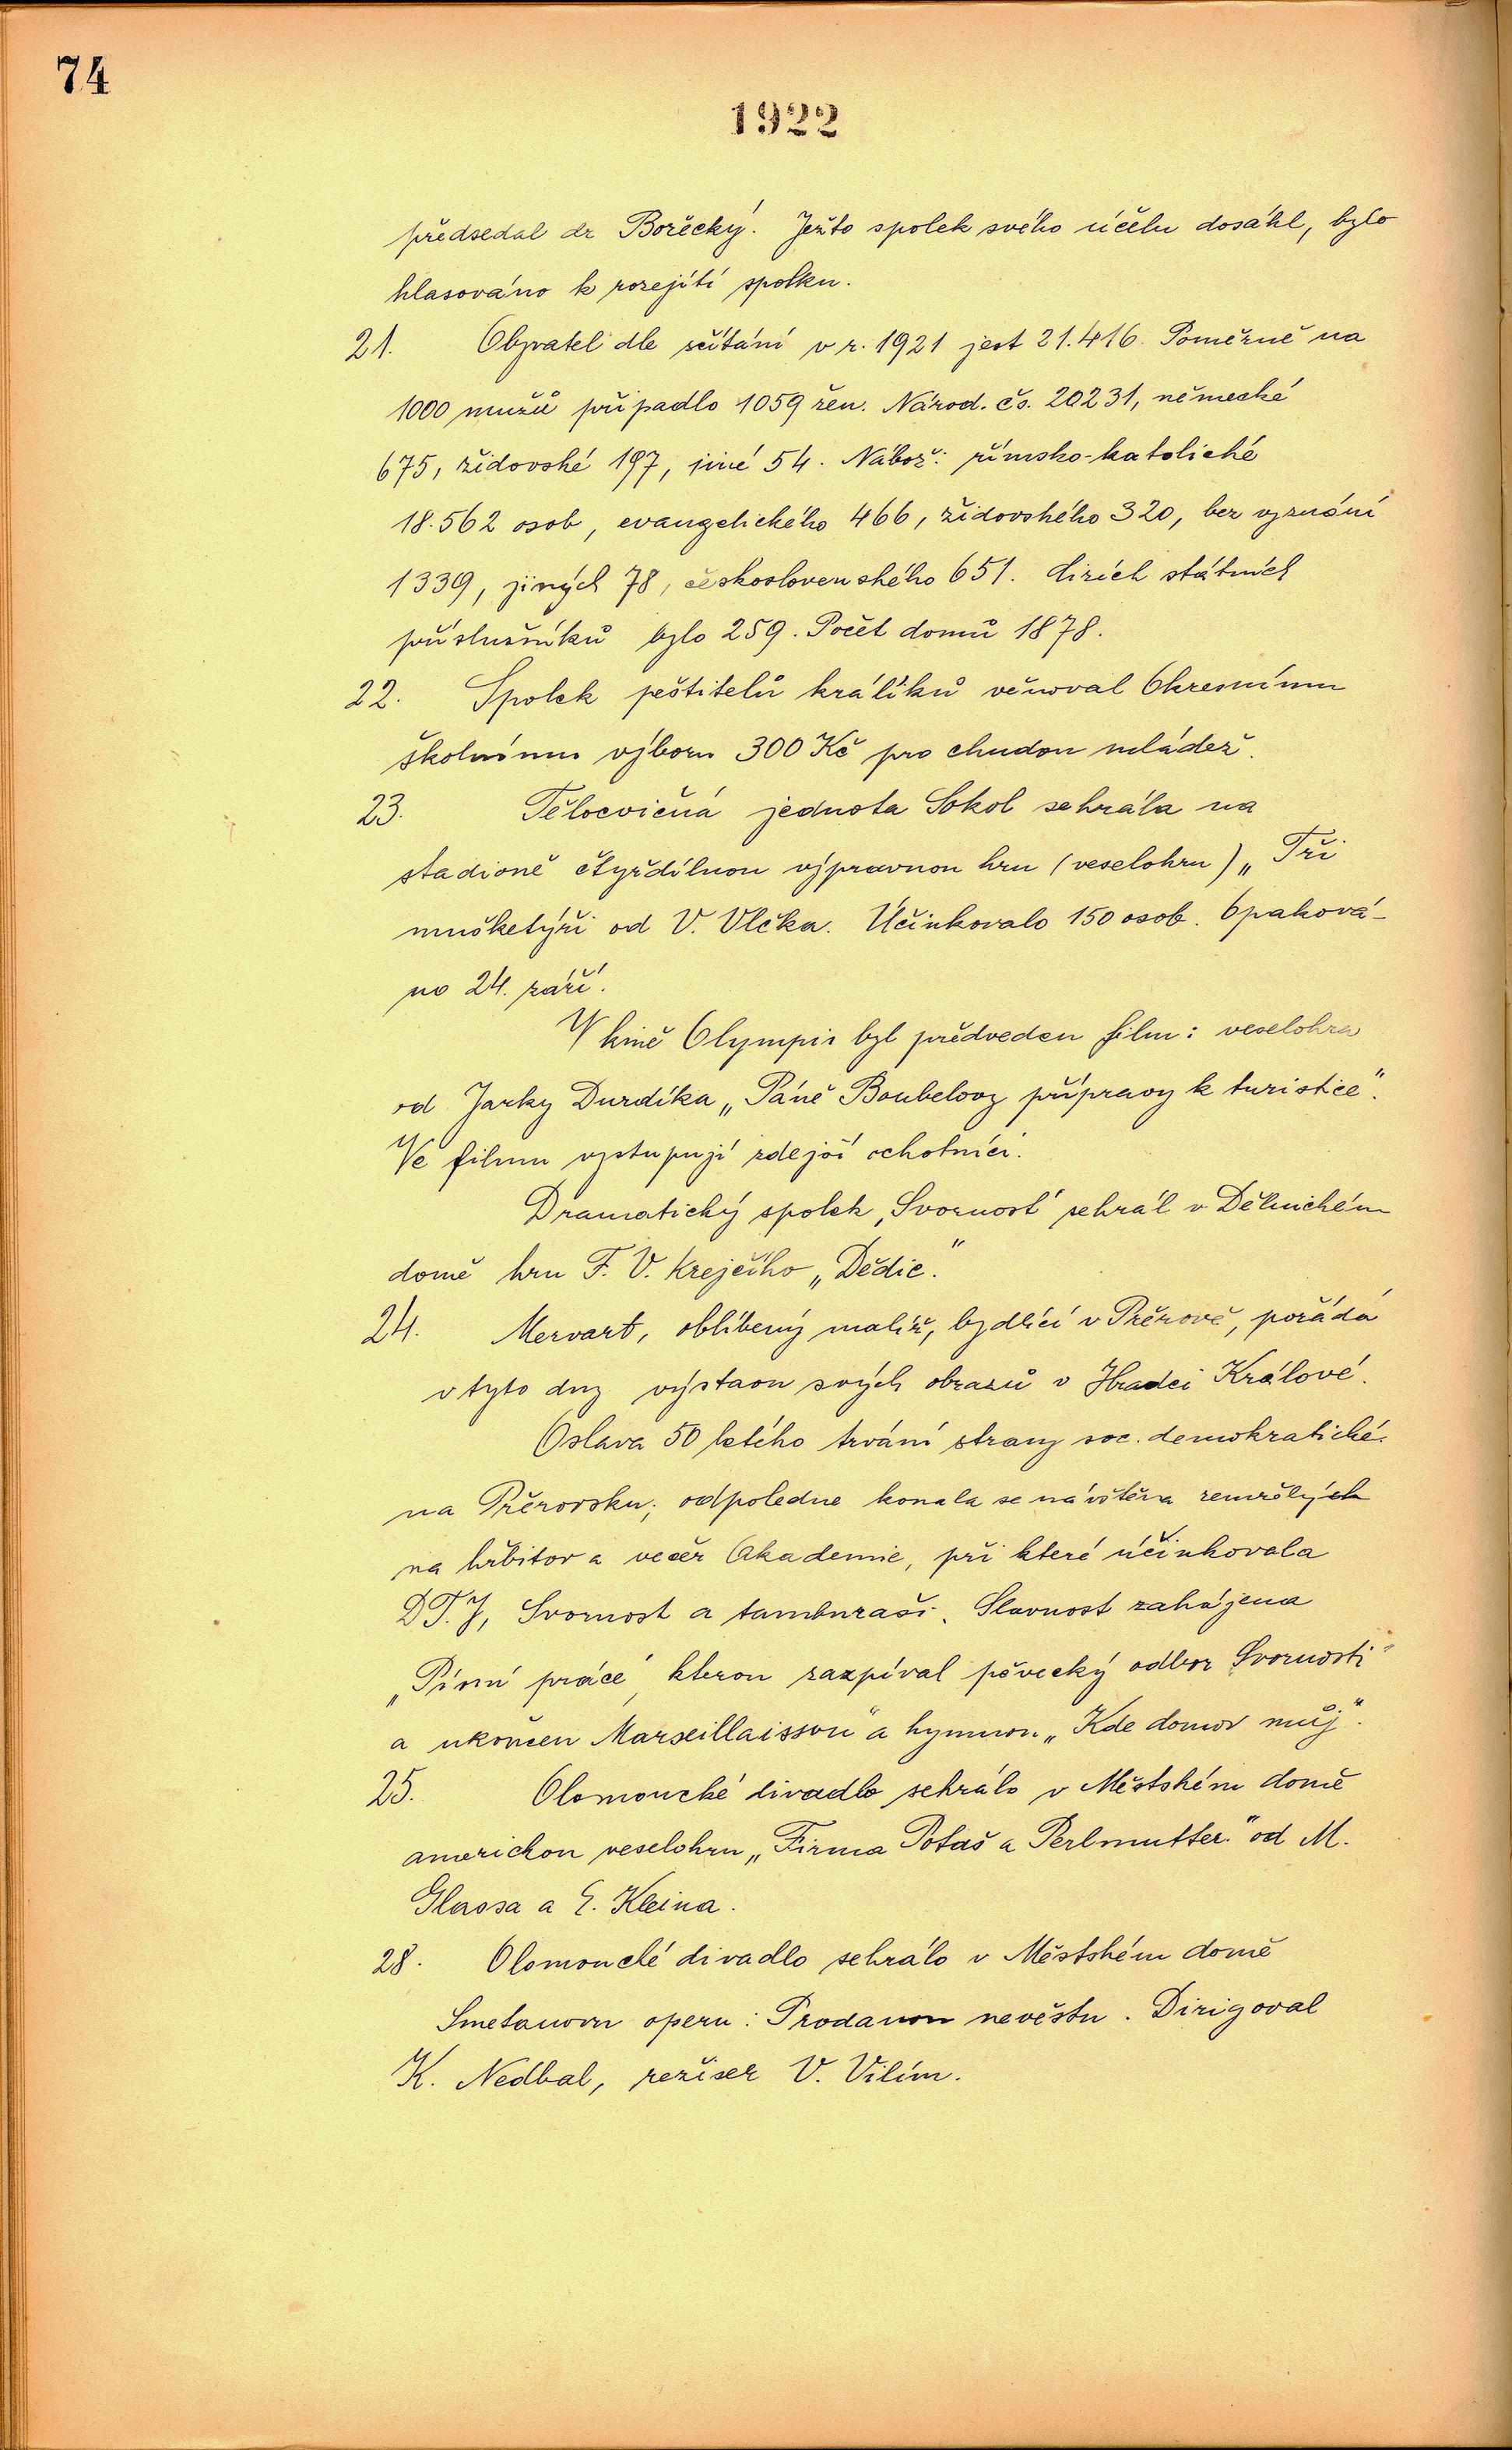 74
1922
předsedal dr Bořecký. Ježto spolek svého účelu dosáhl, bylo
hlasováno k rozejítí spolku.
21. Obyvatel dle sčítání v r. 1921 jest 21.416. Poměrně na
1000 mužů připadlo 1059 žen. Národ. čs. 20231, německé
675, židovské 197, jiné 54. Nábož: římsko-katolické
18.562 osob, evangelického 466, židovského 320, bez vyznání
1339, jiných 78, československého 651. Cizích státních
příslušníků bylo 259. Počet domů 1878.
22. Spolek pěstitelů králíků věnoval Okresnímu
školnímu výboru 300 Kč pro chudou mládež.
23. Tělocvičná jednota Sokol sehrála na
stadioně čtyřdílnou výpravnou hru (veselohru) „Tři
mušketýři od V. Vlčka. Účinkovalo 150 osob. Opaková-
no 24. září.
V kině Olympia byl předveden film: veselohra
od Jarky Durdíka „Páně Boubelovy přípravy k turistice".
Ve filmu vystupují zdejší ochotníci.
Dramatický spolek „Svornost" sehrál v Dělnickém
domě hru F. V. Krejčího „Dědic."
24. Mervart, oblíbený malíř, bydlící v Přerově, pořádá
v tyto dny výstavu svých obrazů v Hradci Králové.
Oslava 50 letého trvání strany soc. demokratické
na Přerovsku; odpoledne konala se návštěva zemřelých
na hřbitov a večer Akademie, při které účinkovala
D.T.J, Svornost a tamburaši. Slavnost zahájena
„Písní práce" kterou zazpíval pěvecký odbor Svornosti"
a ukončen Marseillaissou" a hymnou „Kde domov můj".
25. Olomoucké divadlo sehrálo v Městském domě
americkou veselohru „Firma Potaš a Perlmutter." od M.
Glassa a E. Kleina.
28. Olomoucké divadlo sehrálo v Městském domě
Smetanovu operu: Prodanou nevěstu. Dirigoval
K. Nedbal, režiser V. Vilím.